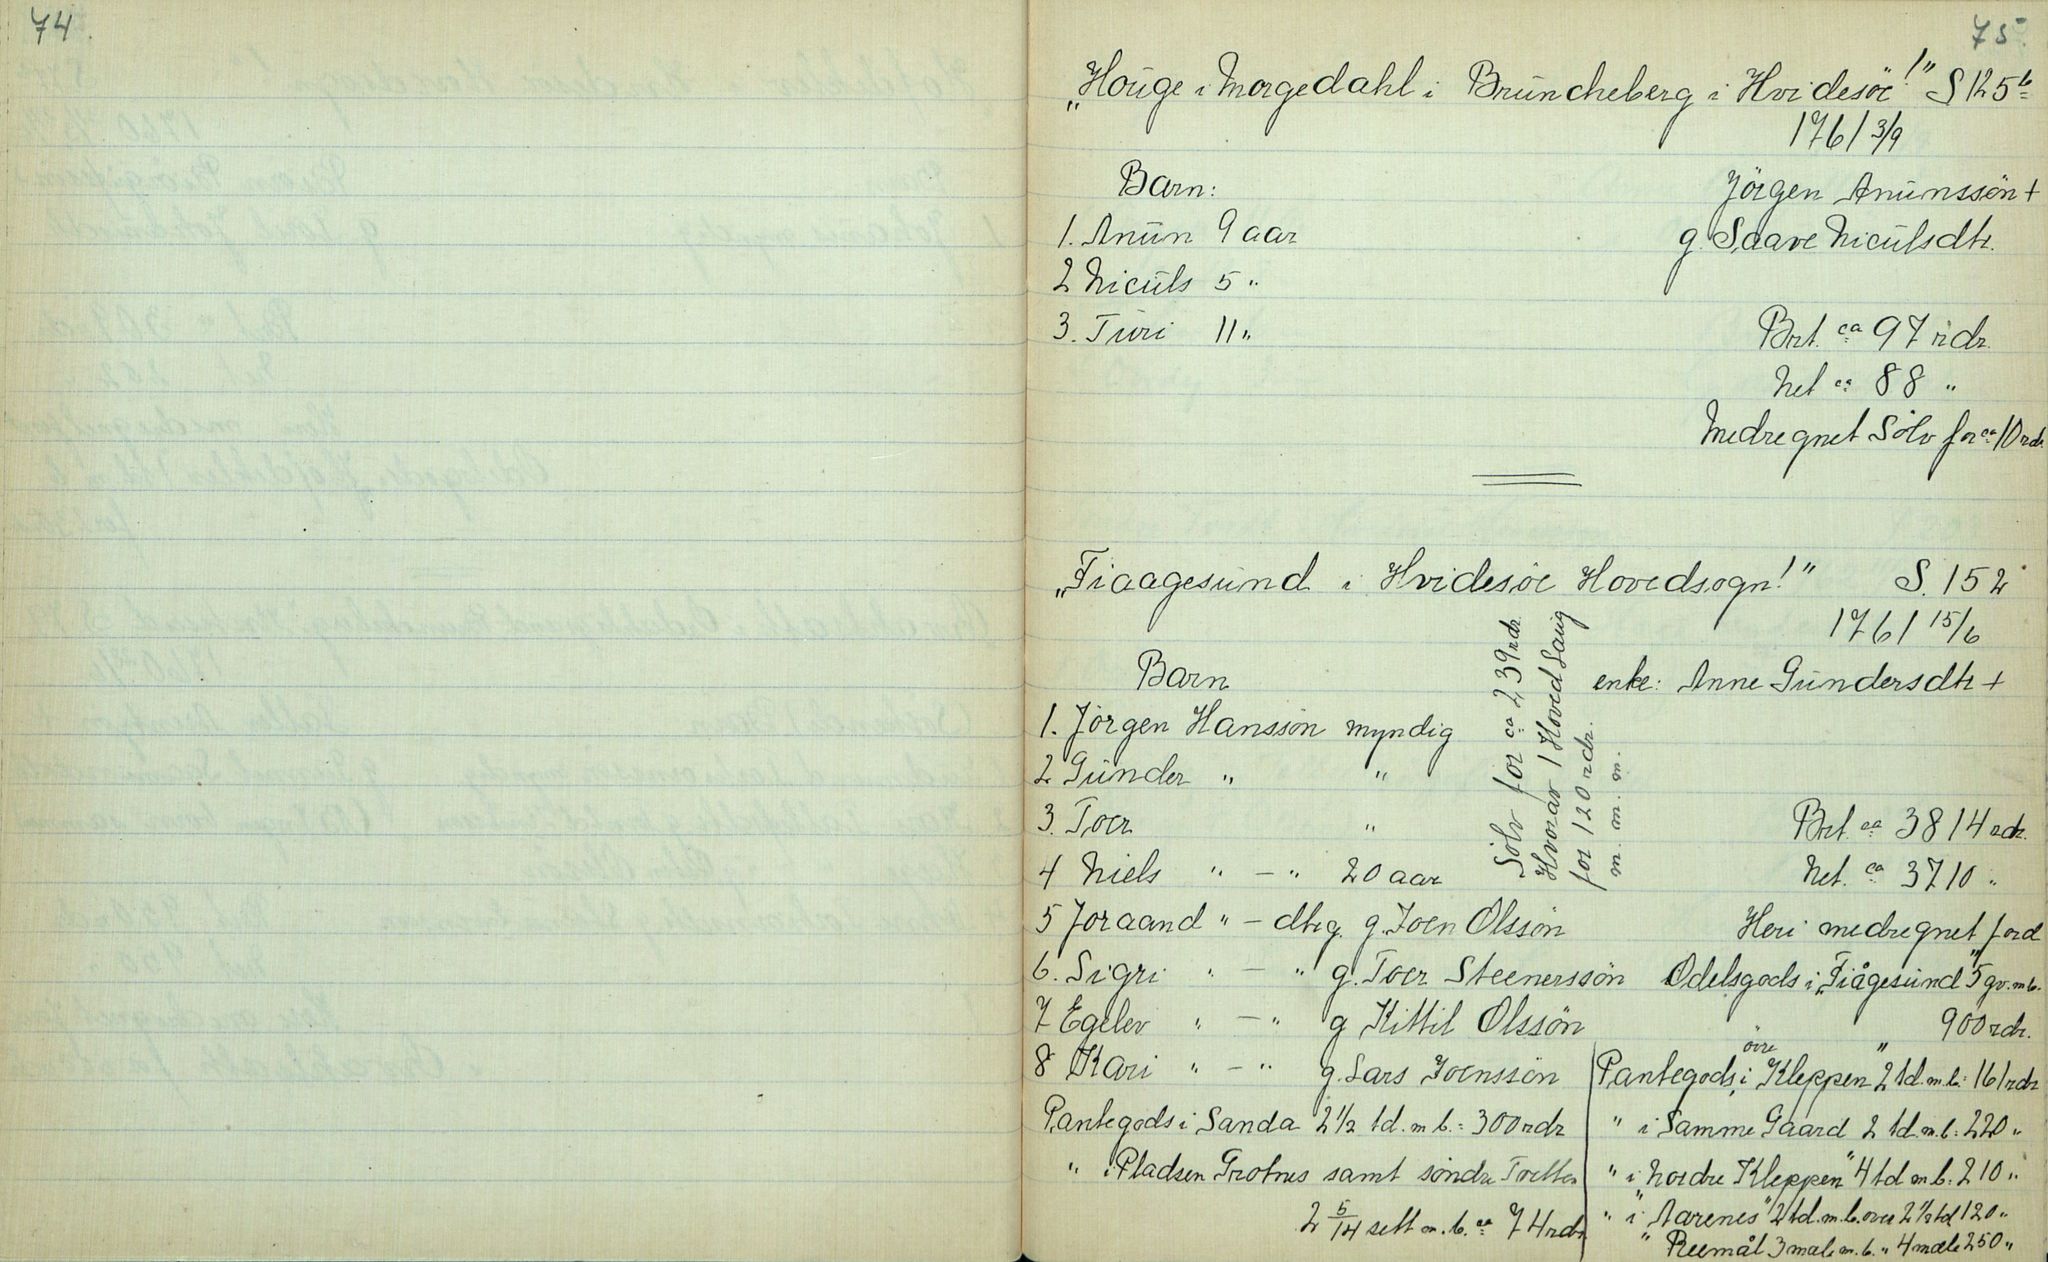 74.
75.
„Houge i Morgedahl i Bruncheberg i Hvidesöe!" S 125 b
1761 3/9
Barn:
Jörgen Anunssön +
1. Anun 9 aar
g. Saave Niculsdtr.
2 Niculs 5 "
3. Turi 11 "
Brt. ca 97 rdr.
Net ca 88 "
Medregnet Sölv for ca 10 rdr.
„Fiaagesund i Hvidesöe Hovedsogn!" S. 152
1761 15/6
Barn
enke: Anne Gundersdtr +
1. Jörgen Hanssön myndig
2 Gunder " "
3. Toer "
4 Niels " — " 20 aar
Sölv for ca 239 rdr.
Hvorav 1 Hoved Saug
for 120 rdr.
m. m. m.
Brt. ca 3814 rdr.
Net. ca 3710 "
5 Joraand " — dtr g. Joen Olssön
Heri medregnet jord
6. Sigri " — " g. Toer Steenerssön
Odelsgods i „Fiågesund" 5 gv. m b.
7 Egelev " — " g Kittil Olssön
900 rdr.
8 Kari " — " g. Lars Joenssön
Pantegods i övre Kleppen" 2 td. m. b. = 161 rdr
Pantegods i Sanda 2 1/2 td. m b. = 300 rdr
" i Samme Gaard 2 td. m. b. = 220 "
" i Pladsen Grotnes samt söndre Tveiten
" i Nordre Kleppen" 4 td m b. = 210 "
2 5/14 sett m. b. ca 74 rdr
" i „Aarenes" 2 td. m. b. over 2 1/2 td 120 "
" Reemål 3 mæle m. b. " 4 mæle 250 "